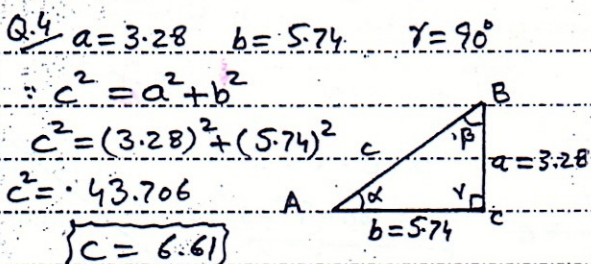 Q.4 a = 3.28 b = 5.74 γ = 90°
∵ c² = a² + b²
c² = (3.28)² + (5.74)²
c² = 43.706
c = 6.61
B
β
c
a = 3.28
A
α
γ
C
b = 5.74